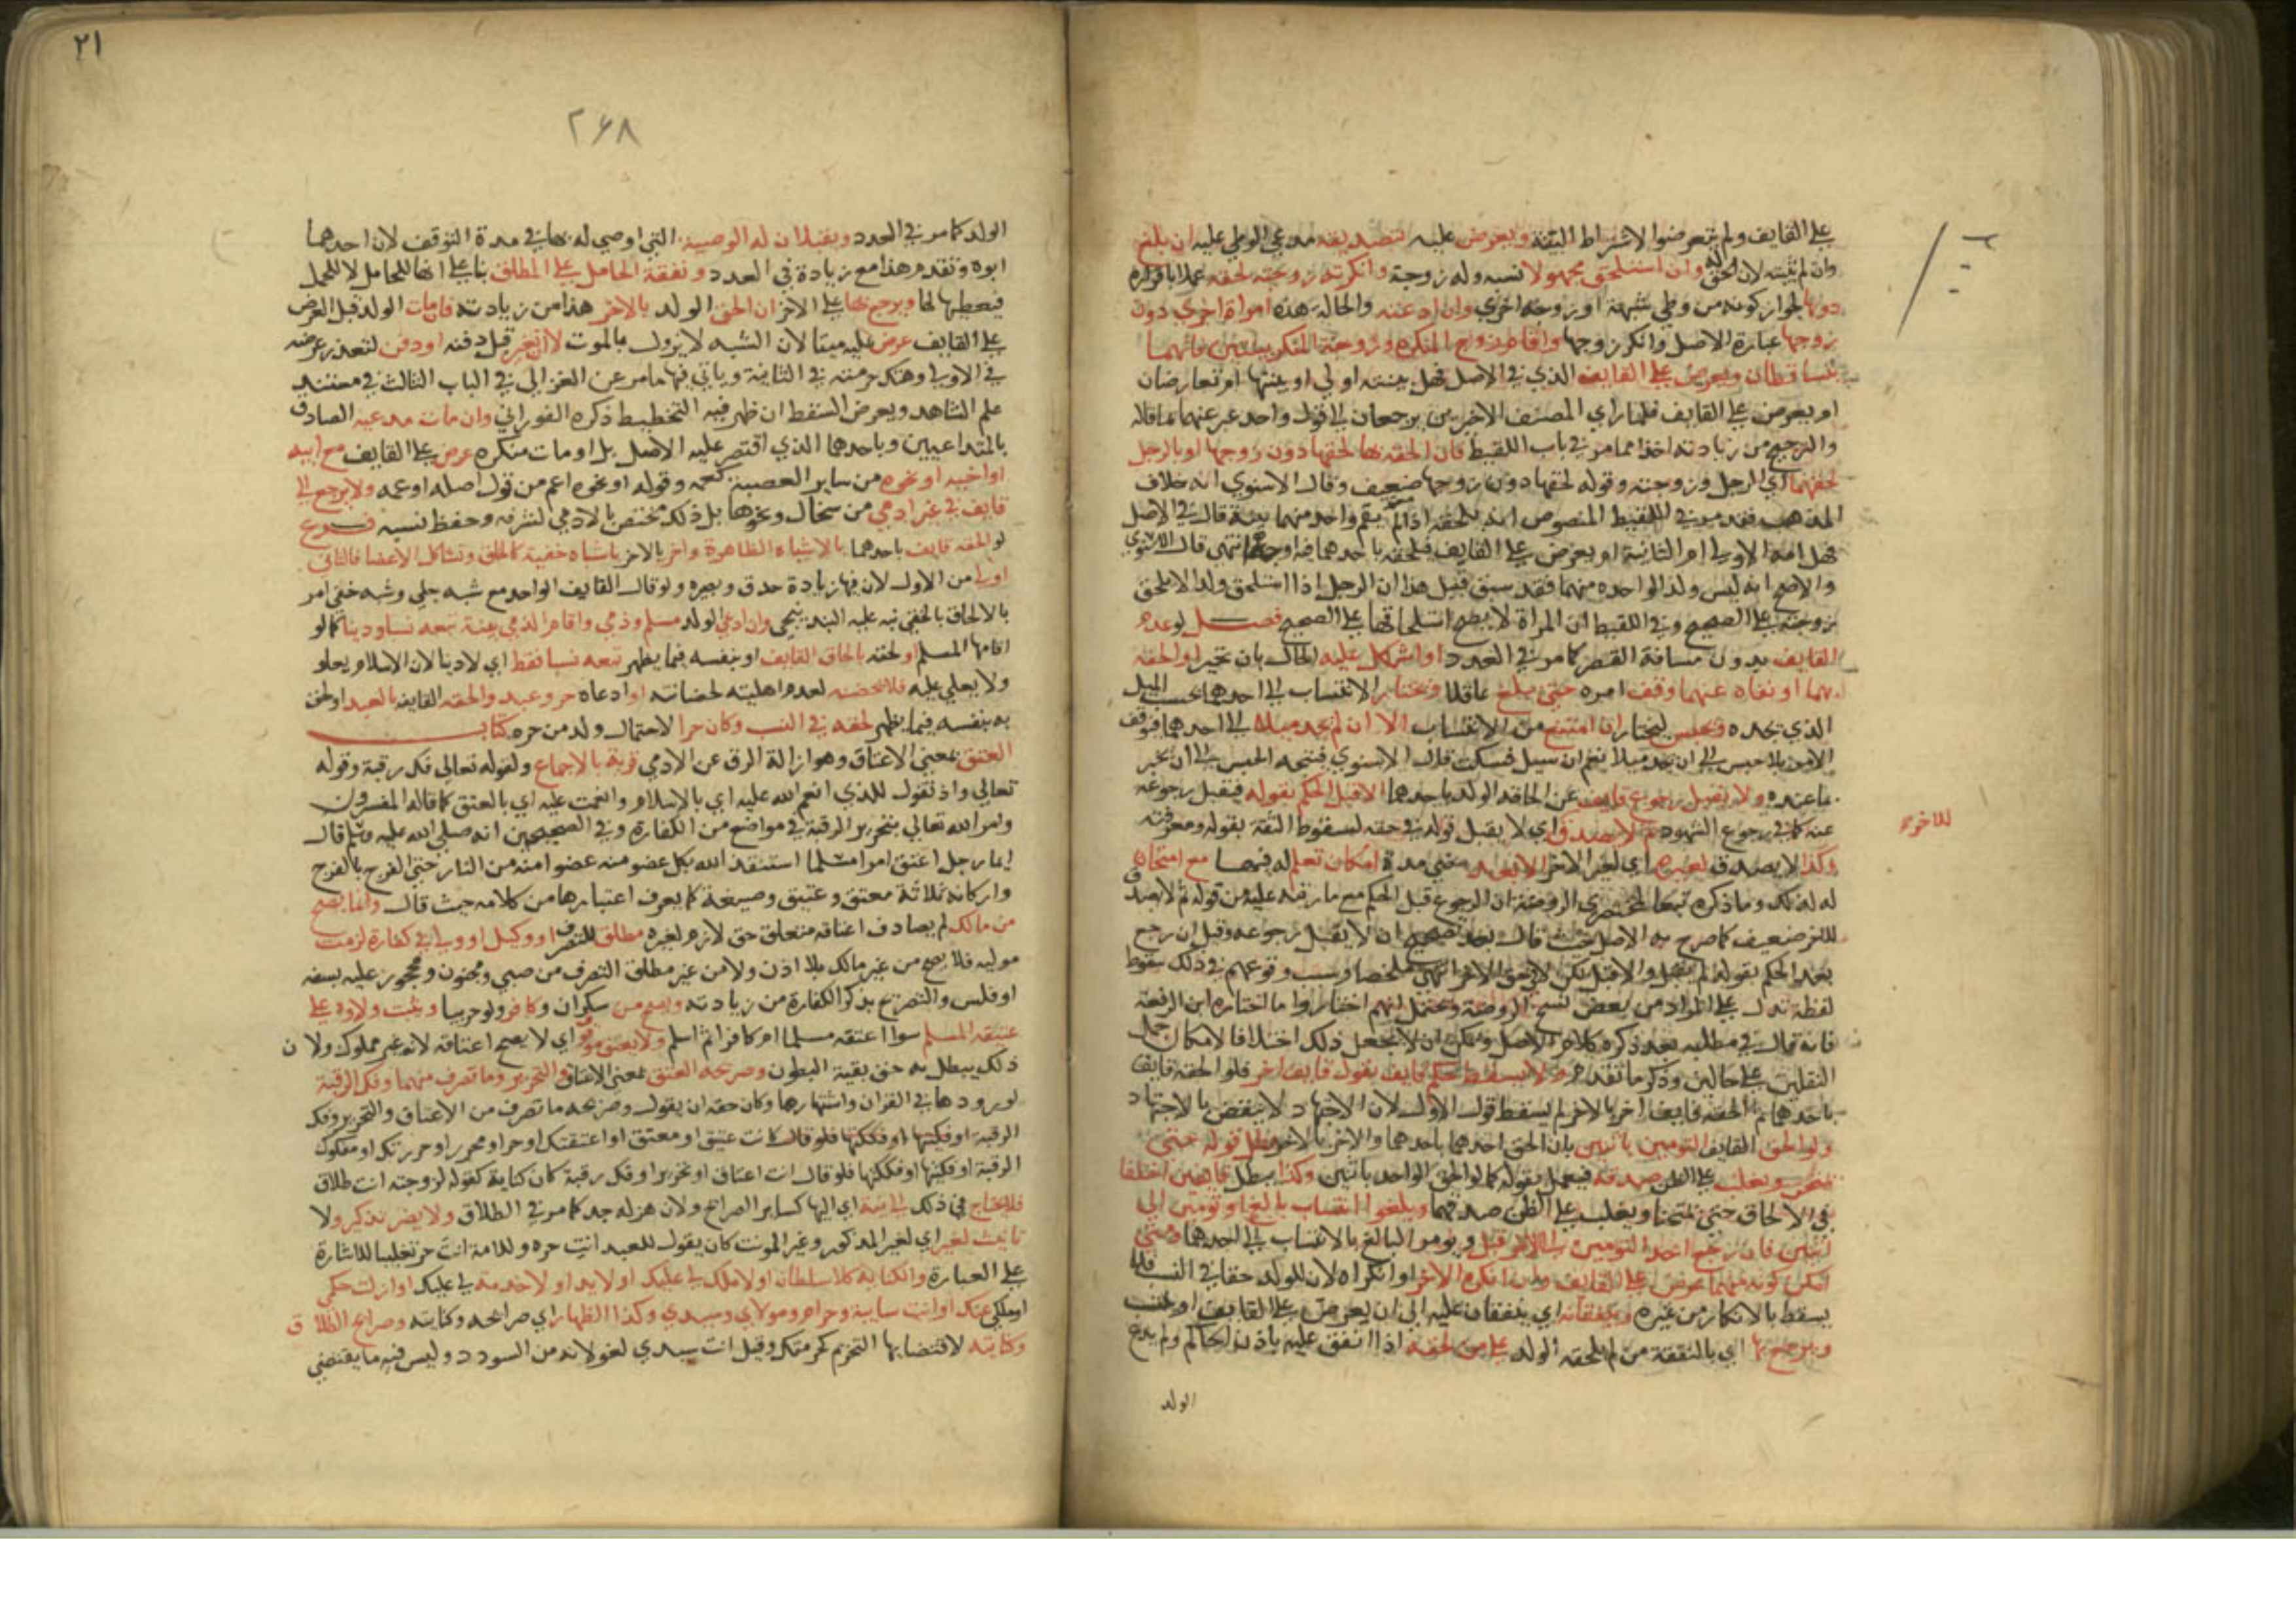 على القايف ولم يتعرضوا لاشتراط البينة ويعرض عليه بتصديقه مدعي الوطي عليه ان بلغ
وان لم يثبته لان الحق له وان استلحق مجهولا نسبه وله زوجة وانكرته زوجته لحقه عملا باقراره
دونها لجواز كونه من وطي شبهة او زوجة اخري وان ادعته والحالة هذه امراة اخري دون
زوجها عبارة الاصل وانكر زوجها واقام زوج المنكرة وزوجة المنكر بينتين فانهما
يتساقطان ويعرض على القايف الذي في الاصل فهل بينته اولي او بينتها او تعارضان
او يعرض على القايف فلما راي المصنف الاخيرين يرجعان الى قول واحد عبر عنهما بما قاله
والترجيح من زيادته اخذا مما مر في باب اللقيط فان الحقه بها لحقها دون زوجها او بالرجل
لحقهما اي الرجل وزوجته وقوله لحقها دون زوجها ضعيف وقال الاسنوي انه خلاف
المذهب فقد مر في اللقيط المنصوص انه يلحقه اذا لم يقم واحد منهما بينة قال في الاصل
فهل امه الاولى ام الثانية ام يعرض على القايف فيلحقه باحدهما فيه اوجه انتهى قال الاسنوي
والاصح انه ليس ولدا لواحدة منهما فقد سبق قبيل هذا ان الرجل اذا استلحق ولدا لا يلحق
زوجته على الصحيح وفي اللقيط ان المراة لا يصح استلحاقها على الصحيح فصل لو عدم
القايف بدون مسافة القصر كما مر في العدد او اشكل عليه الحال بان تحير او الحقه
بهما او نفاه عنهما وقف امره حتى يبلغ عاقلا ويختار الانتساب الى احدهما بحسب الميل
الذي يجده ويحبس ليختار ان امتنع من الانتساب الا ان لم يجد ميلا الى احدهما فيوقف
الامر بلا حبس الى ان يجد ميلا نعم ان سيل فسكت قال الاسنوي فيتجه الحبس الى ان يخبر
بما عنده ولا يقبل رجوع قايف عن الحاقه الولد باحدهما الا قبل الحكم بقوله فيقبل رجوعه
عنه كما في رجوع الشهود ثم لا يصدق اي لا يقبل قوله في حقه لسقوط الثقة بقوله ومعرفته
للاخر
وكذا لا يصدق لغيره اي لغير الاخر الا بعد مضي مدة امكان تعلم له فيها مع امتحان
له لذلك وما ذكره تبعا لمختصري الروضة ان الرجوع قبل الحكم مع ما رتبه عليه من قوله ثم لا يصدق
للاخر ضعيف كما صرح به الاصل حيث قال بعد تصحيح ان لا يقبل رجوعه وقيل ان رجع
بعد الحكم بقوله لم يقبل والا قبل لكن لا يلحق الاخر انتهى ملخصا وسبب وقوعهم في ذلك سقوط
لفظة تدل على المراد من بعض نسخ الروضة ويحتمل انهم اختاروا ما اختاره ابن الرفعة
فانه قال في مطلبه بعد ذكره كلام الاصل ويمكن ان لا يجعل ذلك اختلافا لامكان حمل
النقلين على حالين وذكر ما تقدم ولا يسقط حكم قايف بقول قايف اخر فلو الحقه قايف
باحدهما ثم الحقه قايف اخر بالاخر لم يسقط قول الاول لان الاجتهاد لا ينقض بالاجتهاد
ولو الحق القايف التومين باثنين بان الحق احدهما باحدهما والاخر بالاخر بطل قوله حتى
يمتحن ويغلب على الظن صدقه فيعمل بقوله كما لو الحق الواحد باثنين وكذا يبطل قايفين اختلفا
في الالحاق حتى يمتحنا ويغلب على الظن صدقهما ويلغوا انتساب بالغ او تومين الى
اثنين فان رجع احد التومين الى الاخر قبل ويومر البالغ بالانتساب الى احدهما ومتى
امكن كونه منهما عرض على القايف وان انكره الاخر او انكراه لان للولد حقا في النسب فلا
يسقط بالانكار من غيره وينفقانه اي ينفقان عليه الى ان يعرض على القايف او ينتسب
ويرجع بها اي بالنفقة من لم يلحقه الولد على من لحقه اذا انفق عليه باذن الحاكم ولم يدع
الولد
٢١
٢٦٨
الولد كما مر في العدد ويقبلان له الوصية التي اوصي له بها في مدة التوقف لان احدهما
ابوه وتقدم هذا مع زيادة في العدد ونفقة الحامل على المطلق بنا على انها للحامل لا للحمل
فيعطيها لها ويرجع بها على الاخر ان الحق الولد بالاخر هذا من زيادته فان مات الولد قبل العرض
على القايف عرض عليه ميتا لان الشبه لا يزول بالموت لا ان تغير قبل دفنه او دفن لتعذر عرضه
في الاولى وهتك حرمته في الثانية وياتي فيها ما مر عن الغزالي في الباب الثالث في مستند
علم الشاهد ويعرض السقط ان ظهر فيه التخطيط ذكره الفوراني وان مات مدعيه الصادق
بالمتداعيين وباحدهما الذي اقتصر عليه الاصل بل او مات منكره عرض على القايف مع ابيه
او اخيه او نحوه من ساير العصبة كعمه وقوله او نحوه اعم من قول اصله او عمه ولا يرجع الى
قايف في غير ادمي من سخال ونحوها بل ذلك مختص بالادمي لشرفه وحفظ نسبه فرع
لو الحقه قايف باحدهما بالاشباه الظاهرة واخر بالاخر باشباه خفية كالخلق وتشاكل الاعضا فالثاني
اولى من الاول لان فيها زيادة حذق وبصيرة ولو قال القايف الواحد مع شبه جلي وشبه خفي امر
بالالحاق بالخفي نبه عليه البندنيجي وان ادعى الولد مسلم وذمي واقام الذمي بينة تبعه نسبا ودينا كما لو
اقامها المسلم او لحقه بالحاق القايف او بنفسه فيما يظهر تبعه نسبا فقط اي لا دينا لان الاسلام يعلو
ولا يعلي عليه فلا يحضنه لعدم اهليته لحضانته او ادعاه حر وعبد والحقه القايف بالعبد او لحق
به بنفسه فيما يظهر لحقه في النسب وكان حرا لاحتمال ولد من حرة كتاب
العتق بمعنى الاعتاق وهو ازالة الرق عن الادمي قربة بالاجماع ولقوله تعالى فك رقبة وقوله
تعالى واذ تقول للذي انعم الله عليه اي بالاسلام وانعمت عليه اي بالعتق كما قاله المفسرون
وامر الله تعالى بتحرير الرقبة في مواضع من الكفارة وفي الصحيحين انه صلى الله عليه وسلم قال
ايما رجل اعتق امرا مسلما استنقذ الله بكل عضو منه عضوا منه من النار حتى الفرج بالفرج
واركانه ثلاثة معتق وعتيق وصيغة كما يعرف اعتبارها من كلامه حيث قال وانما يصح
من مالك لم يصادف اعتاقه متعلق حق لازم لغيره مطلق التصرف او وكيل او ولي في كفارة لزمت
موليه فلا يصح من غير مالك بلا اذن ولا من غير مطلق التصرف من صبي ومجنون ومحجور عليه بسفه
او فلس والتصريح بذكر الكفارة من زيادته ويصح من سكران وكافر ولو حربيا ويثبت ولاوه على
عتيقه المسلم سوا اعتقه مسلما ام كافرا ثم اسلم ولا يعتق موقوف اي لا يصح اعتاقه لانه غير مملوك ولان
ذلك يبطل به حق بقية البطون وصريحه العتق بمعنى الاعتاق والتحرير وما تصرف منهما وفك الرقبة
لورودها في القران واشتهارها وكان حقه ان يقول وصريحه ما تصرف من الاعتاق والتحرير وفك
الرقبة او فكيتها او فككتها فلو قال انت عتيق او معتق او اعتقتك او حر او محرر او حررتك او مفكوك
الرقبة او فكيتها او فككتها فلو قال انت اعتاق او تحرير او فك رقبة كان كناية كقوله لزوجته انت طلاق
فلا يحتاج في ذلك الى نية اي اليها كساير الصرايح ولان هزله جد كما مر في الطلاق ولا يضر تذكير ولا
تانيث لغير اي لغير المذكر وغير المونث كان يقول للعبد انت حرة وللامة انت حر تغليبا للاشارة
على العبارة والكناية كلا سلطان او لا ملك لي عليك او لا يد او لا خدمة لي عليك او ازلت حكمي
او ملكي عنك او انت سايبة وحرام ومولاي وسيدي وكذا الظهار اي صرايحه وكنايته وصرايح الطلاق
وكنايته لاقتضايها التحريم كحرمتك وقيل انت سيدي لغو لانه من السودد وليس فيه ما يقتضي